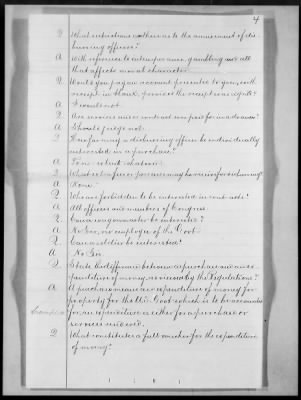 4
Q What restrictions are there as to the amusement of dis-
bursing officers?
A With reference to intemperance, gambling and all
that affects moral character.
Q Would you pay an account presented to you, with
receipt in blank, provided the receipt was right?
A I would not.
Q Are services under contract ever paid for in advance?
A I should judge not.
Q How far may a disbursing officer be individually
interested in a purchase?
A To no extent whatever.
Q What extra fee or pay
A None.
Q Who are forbidden to be interested in contracts?
A All officers and members of Congress.
Q Can a wagonmaster be interested?
A No Sir, no employee of the Govt.
Q Can a soldier be interested?
A No Sir.
Q State the difference between a purchase and an ex-
penditure of money, as viewed by the Regulations?
A A purchase means an expenditure of money for
property for the U.S. Govt. which is to be accounted
for, an expenditure is either for a purchase or
services rendered.
Q What constitutes a full voucher for the expenditure
of money?